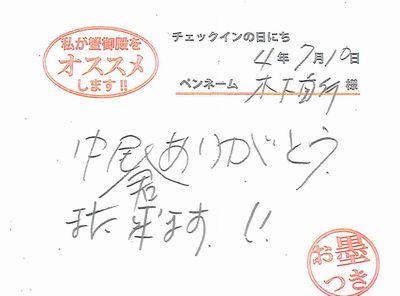 私が蟹御殿を
オススメ
します!!
チェックインの日にち
4年7月10日
ペンネーム 木下 様
中居 ありがとう
君
また来ます!!
お墨
つき